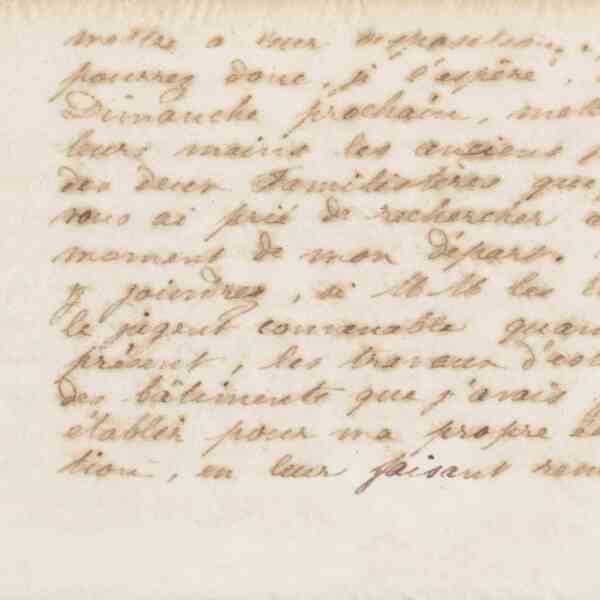 mettre à leur disposition.
pourrez donc, j'espère,
Dimanche prochain, mett
leurs mains les anciens p
des deux Familistères que
vous ai prié de rechercher a
moment de mon départ.
y joindrez, si MM les
le jugent convenable quan
présent, les travaux d'est
des bâtiments que j'avais f
établir pour ma propre
tion, en leur faisant rem